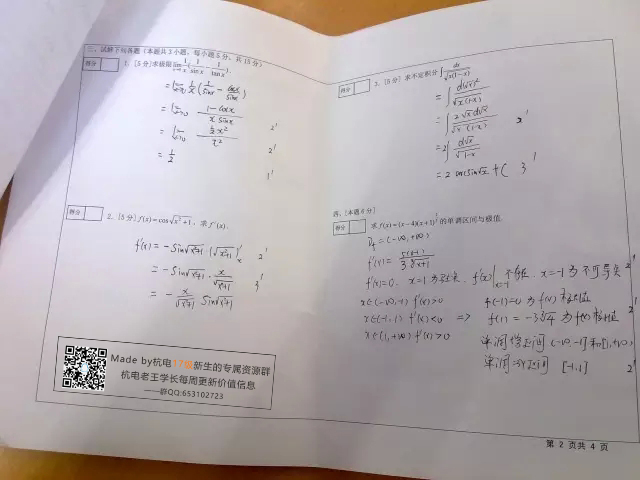 三、试解下列各题（本题共3小题，每小题5分，共15分）
得分
1. [5分]求极限lim x→0 1/x (1/sin x − 1/tan x).
= lim x→0 1/x (1/sinx − cosx/sinx)
= lim x→0 (1−cosx)/(x sinx) 2'
= lim x→0 (½x²)/x² 2'
= 1/2 1'
得分
2. [5分] f(x)=cos√(x²+1)，求f'(x).
f'(x) = −sin√(x²+1) · (√(x²+1))'x 2'
= −sin√(x²+1) · x/√(x²+1) 3'
= − x/√(x²+1) sin√(x²+1)
Made by杭电 新生的专属资源群
杭电老王学长每周更新价值信息
——群QQ:653102723
得分
3. [5分] 求不定积分∫ dx/√(x(1−x))
= ∫ d(√x)²/√(x(1−x))
= ∫ 2√x d√x/√(x(1−x)) 2'
= 2∫ d√x/√(1−x)
= 2 arcsin√x + C 3'
四、[本题6分]
得分
求f(x)=(x−4)∛(x+1) 的单调区间与极值
D_f = (−∞,+∞)
f'(x) =
f'(x)=0, x=1为驻点, x=−1为不可导点 2'
x∈(−∞,−1) f'(x)>0 f(−1)=0为f(x)极大值
x∈(−1,1) f'(x)<0 => f(1) = −3∛4为f(x)极小值 2'
x∈(1,+∞) f'(x)>0 单调增区间 (−∞,−1]和[1,+∞)
单调减区间 [−1,1] 2'
第 2 页共 4 页